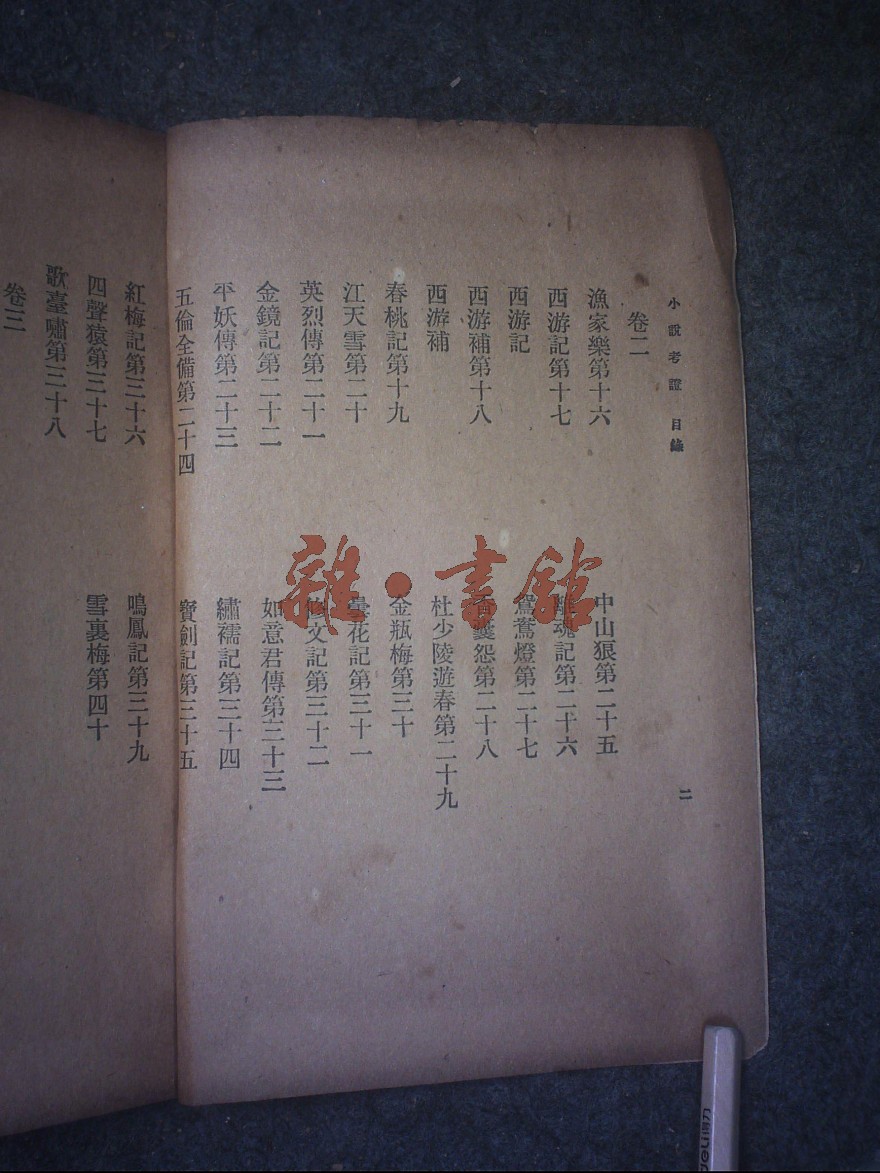 小說考證 目錄
二
卷二
漁家樂第十六
西游記第十七
西游記
西游補第十八
西游補
春桃記第十九
江天雪第二十
英烈傳第二十一
金鏡記第二十二
平妖傳第二十三
五倫全備第二十四
中山狼第二十五
魂記第二十六
鴛鴦燈第二十七
囊怨第二十八
杜少陵遊春第二十九
金瓶梅第三十
曇花記第三十一
修文記第三十二
如意君傳第三十三
繡襦記第三十四
寶劍記第三十五
紅梅記第三十六
四聲猿第三十七
歌臺嘯第三十八
鳴鳳記第三十九
雪裏梅第四十
卷三
雜·書館
deli 得力